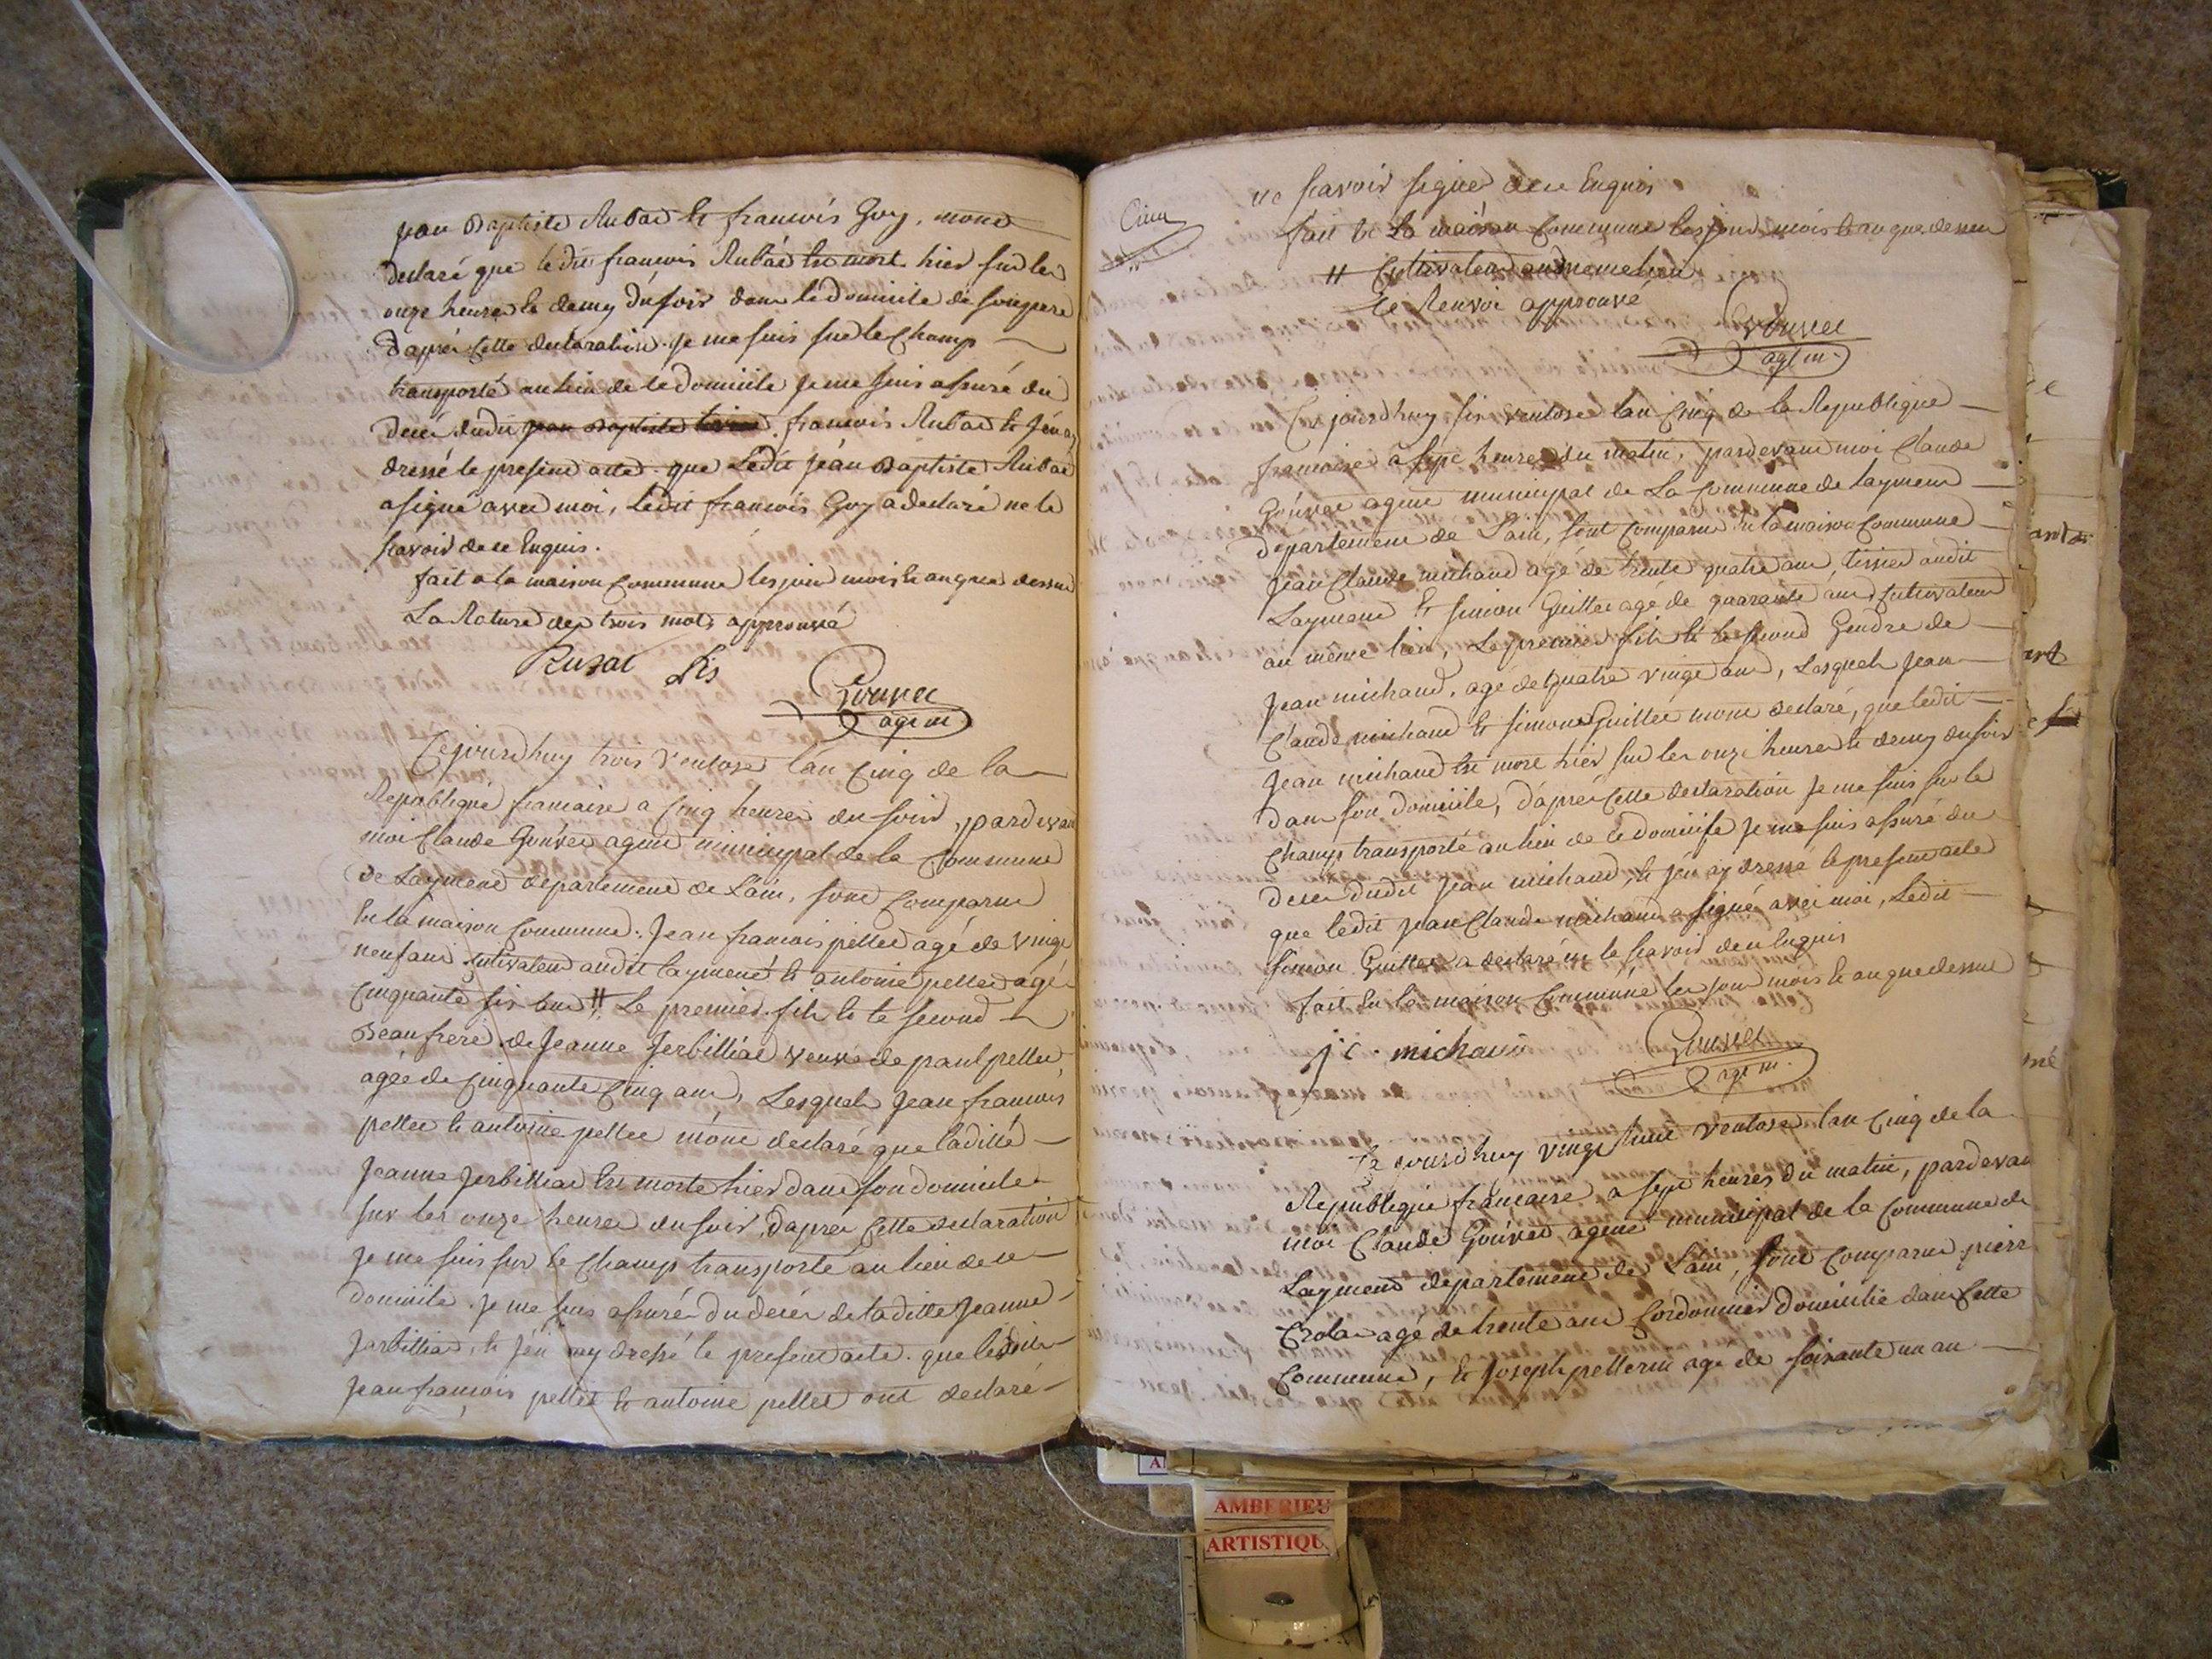 jean Baptiste Rubat et francois Guy, mont
declaré que ledit francois Rubat est mort hier sur les
onze heures et demy du soir dans le domicile de son pere
d'apres cette declaration je me suis sur le Champ
transporté au lieu de ce domicile je me suis assuré du
deces dudit jean Baptiste francois Rubat et j'en ay
dressé le present acte que Ledit jean Baptiste Rubat
a signé avec moi, ledit francois Guy a declaré ne le
scavoir de ce Enquis.
fait a la maison Commune les jour mois et an que dessus
La Rature des trois mots approuvée
Ruzat fils
Gouvet
agt m
Cejourdhuy trois Ventose l'an Cinq de la
Republique francaise a Cinq heures du soir, pardevant
moi Claude Gouvet agent municipal de la Commune
de Laymend departement de L'ain, sont Comparus
En la maison Commune. Jean francois pellet agé de vingt
neuf ans Cultivateur audit laymend et antoine pellet agé
Cinquante six ans # Le premier fils et le second
Beaufrere de Jeanne Jerbilliat veuve de paul pellet,
agée de Cinquante Cinq ans, Lesquels Jean francois
pellet et antoine pellet m'ont declaré que laditte
Jeanne Jerbilliat est morte hier dans son domicile
sur les onze heures du soir, d'apres Cette declaration
je me suis sur le Champ transporté au lieu de ce
domicile. je me suis assuré du deces de laditte Jeanne
Jarbilliat, et j'en ay dressé le present acte. que lesdits
Jean francois pellet et antoine pellet ont declaré
Cinq
ne scavoir signer de ce Enquis
fait En La maison Commune les jour mois et an que dessus
# Cultivateur au meme lieu
le Renvoi approuvé
Gouvet
agt m.
Cejourdhuy six ventose l'an Cinq de la Republique
francaise a sept heures du matin, pardevant moi Claude
Gouvet agent municipal de La Commune de laymend
departement de L'ain, sont Comparus En la maison Commune
Jean Claude michaud agé de trente quatre ans, tissier audit
Laymend et simon Guittet agé de quarante ans, Cultivateur
au même lieu, Le premier fils et le second Gendre de
Jean michaud, agé de quatre vingt ans, Lesquels Jean
Claude michaud et simon Guittet mont declaré, que ledit
Jean michaud est mort hier sur les onze heures et demy du soir
dans son domicile, d'apres Cette declaration je me suis sur le
Champ transporté au lieu de ce domicile je me suis assuré du
deces dudit Jean michaud, et j'en ay dressé le present acte
que ledit Jean Claude michaud a signé avec moi, Ledit
simon Guittet a declaré ne le scavoir de ce Enquis
fait En la maison Commune les jour mois et an que dessus
j c michaud
Gouvet
agt m.
Ce jourdhuy vingt huit ventose l'an Cinq de la
Republique francaise, a sept heures du matin, pardevant
moi Claude Gouvet, agent municipal de la Commune de
Laymend departement de L'ain, sont Comparus pierre
Crolas agé de trente ans Cordonnier domicilié dans Cette
Commune, et Joseph pellerin agé de soixante un an
AMBERIEU
ARTISTIQU